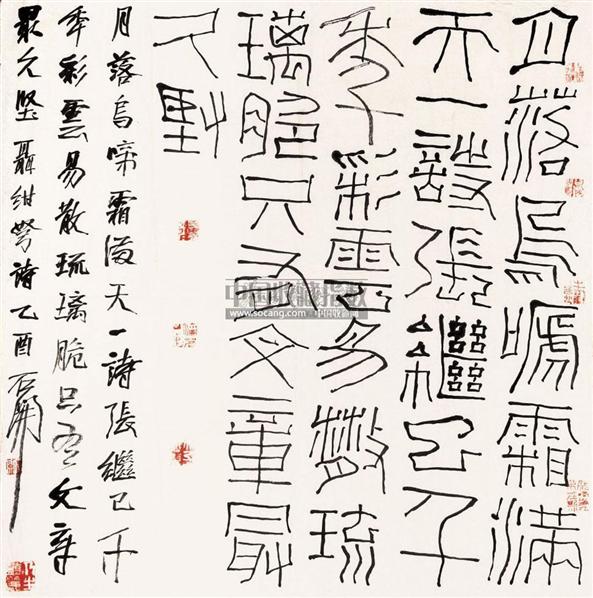 月落烏嗁霜滿
天一詩張繼已千
季彩雲易散琉
璃脆只有文章最
久堅
月落烏啼霜滿天一詩張繼已千
年彩雲易散琉璃脆只有文章
最久堅聶紺弩詩乙酉石開
中国收藏指数
www.socang.com